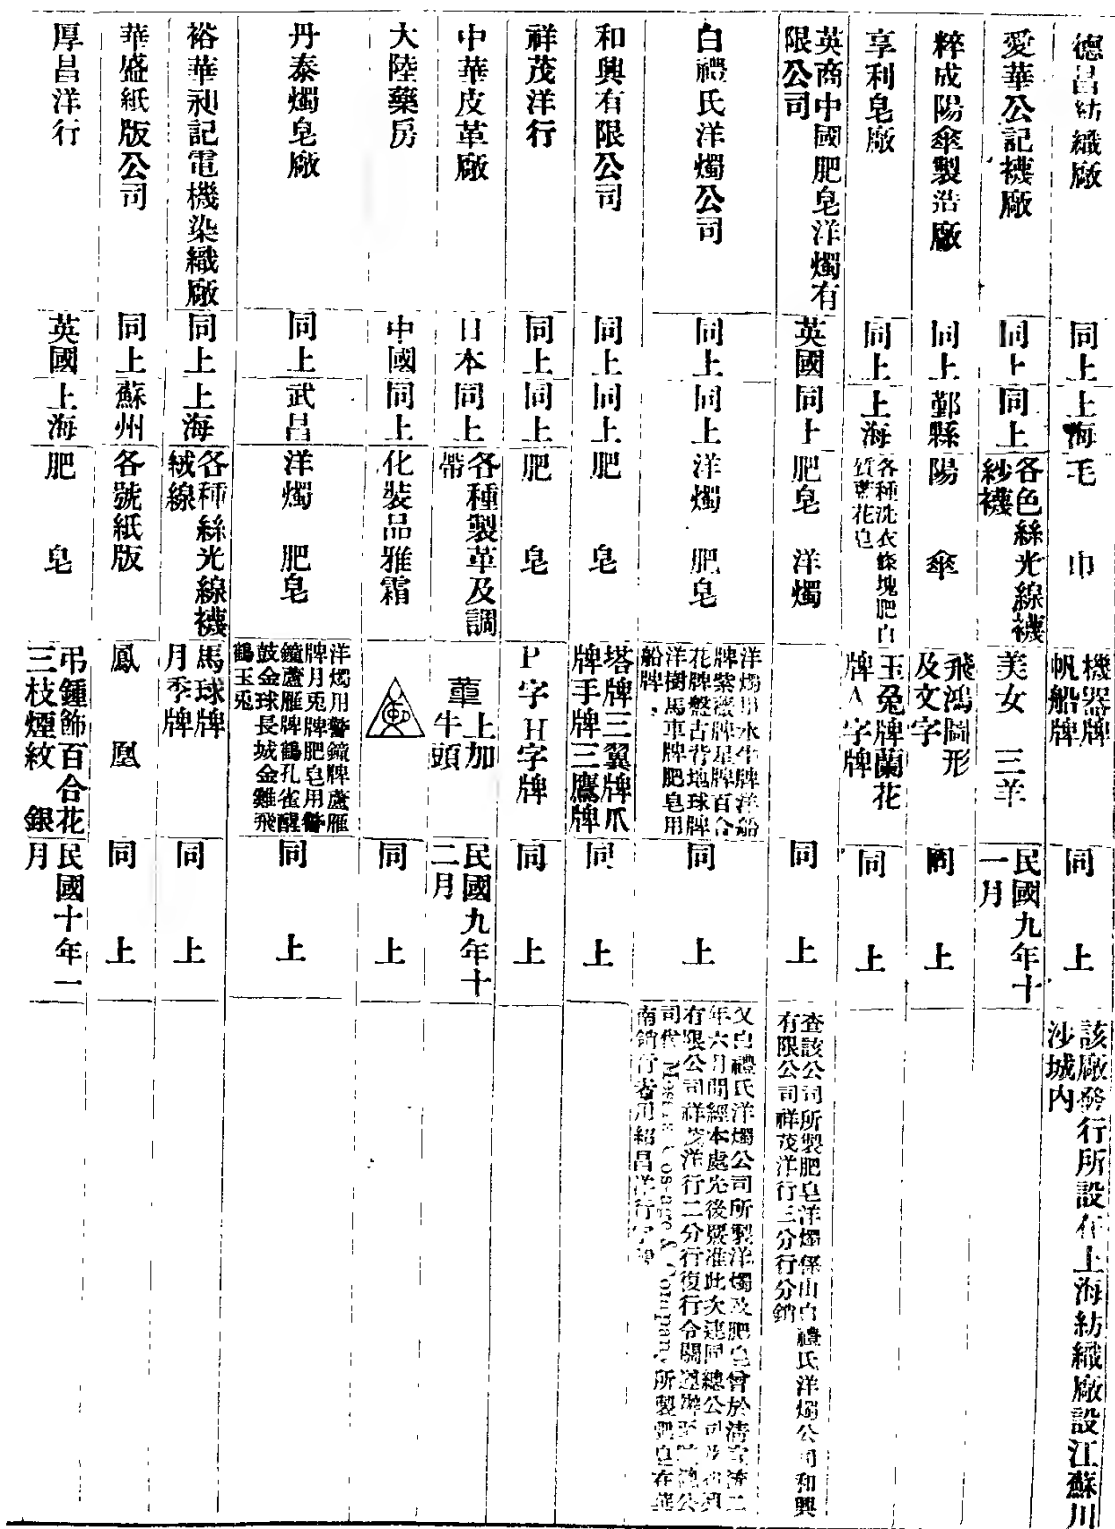 德昌紡織廠
同上
上海
毛巾
機器牌
帆船牌
同上
該廠發行所設在上海紡織廠設江蘇川
沙城内
愛華公記襪廠
同上
同上
各色絲光線襪
紗襪
美女 三羊
民國九年十
一月
粹成陽傘製造廠
同上
鄞縣
陽傘
飛鴻圖形
及文字
同上
享利皂廠
同上
上海
各種洗衣條塊肥白
花皂
玉兔牌蘭花
牌A字牌
同上
英商中國肥皂洋燭有
限公司
英國
同上
肥皂 洋燭
同上
查該公司所製肥皂洋燭係由白禮氏洋燭公司和興
有限公司祥茂洋行三分行分銷
白禮氏洋燭公司
同上
同上
洋燭 肥皂
洋燭用水牛牌洋船
牌紫蜜牌星牌百合
花牌盤古背地球牌
洋樹馬車牌肥皂用
船牌
同上
又白禮氏洋燭公司所製洋燭及肥皂曾於清宣統二
年六月間經本處先後核准此次連同總公司及和興
有限公司祥茂洋行二分行復行令關遵辦至該總公
司代 Company 所製肥皂在華
南銷行者用紹昌洋行
和興有限公司
同上
同上
肥皂
塔牌三翼牌爪
牌手牌三鷹牌
同上
祥茂洋行
同上
同上
肥皂
P字H字牌
同上
中華皮革廠
日本
同上
各種製革及調
帶
上加
牛頭
民國九年十
二月
大陸藥房
中國
同上
化裝品雅霜
同上
丹泰燭皂廠
同上
武昌
洋燭 肥皂
洋燭用警鐘牌蘆雁
牌月兎牌肥皂用警
鐘蘆雁牌鶴孔雀醒
鼓金球長城金雞飛
鶴玉兎
同上
裕華昶記電機染織廠
同上
上海
各種絲光線襪
絨線
馬球牌
月季牌
同上
華盛紙版公司
同上
蘇州
各號紙版
鳳凰
同上
厚昌洋行
英國
上海
肥皂
弔鍾飾百合花
三枝煙紋 銀
民國十年一
月